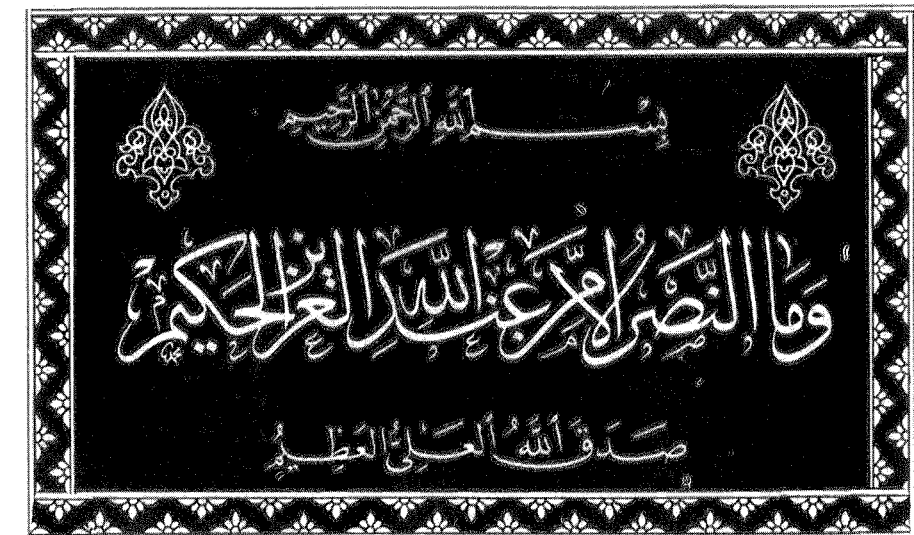 بِسْمِ ٱللَّهِ ٱلرَّحْمَٰنِ ٱلرَّحِيمِ
وَمَا النَّصْرُ إِلَّا مِنْ عِنْدِ اللَّهِ الْعَزِيزِ الْحَكِيمِ
صَدَقَ ٱللَّهُ ٱلعَلِيُّ العَظِيمُ